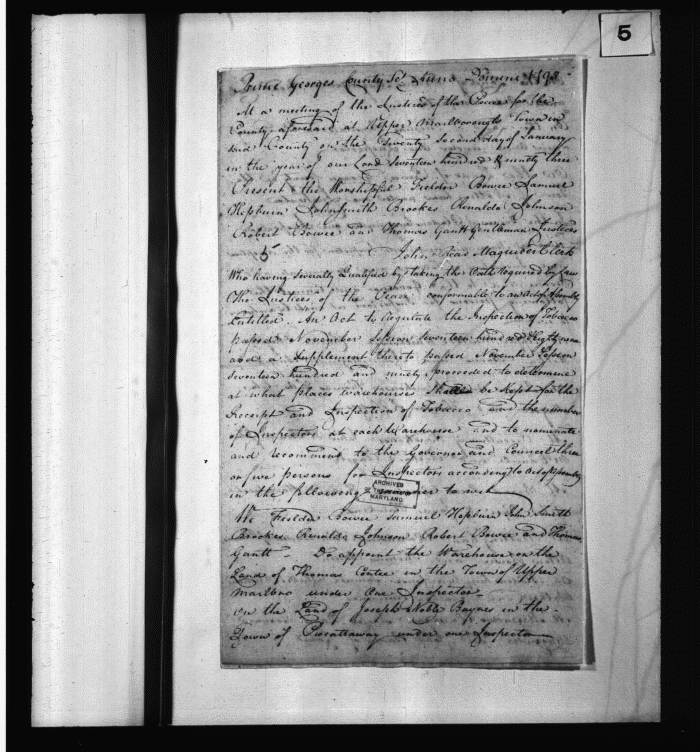 5
Prince Georges County Sct Anno Domini 1793
At a meeting of the Justices of the Peace for the
County aforesaid at Upper Marlborough Town in
said County on the Twenty Second day of January
in the year of our Lord Seventeen hundred & ninety three
Present the Worshipful Fielder Bowie Samuel
Hepburn John Smith Brookes Renaldo Johnson
Robert Bowie and Thomas Gantt Gentlemen Justices
5 John Read Magruder Clerk
Who having severally Qualified by taking the Oath required by Law
The Justices of the Peace conformable to an Act of Assembly
Entitled. An Act to regulate the Inspection of Tobacco
passed November Session seventeen hundred & Eighty nine
and a Supplement thereto passed November Session
seventeen hundred and ninety proceeded to determine
at what places warehouses shall be kept for the
Receipt and Inspection of Tobacco and the number
of Inspectors at each Warehouse and to nominate
and recommend to the Governor and Council three
or five persons for Inspectors according to Act of Assembly
in the following manner to wit
ARCHIVES
OF
MARYLAND
We Fielder Bowie Samuel Hepburn John Smith
Brookes Renaldo Johnson Robert Bowie and Thomas
Gantt Do appoint the Warehouse on the
Land of Thomas Contee in the Town of Upper
Marlbro under one Inspector
On the Land of Joseph Noble Baynes in the
Town of Piscattaway under one Inspector